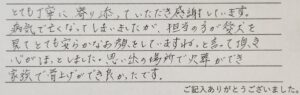 とても丁寧に寄り添っていただき感謝しています。
病気で亡くなってしまいましたが、担当の方が愛犬を
見てとても安らかなお顔をしていますね。と言って頂き
心がほっとしました。思い出の場所で火葬ができ
家族で骨上げができ良かったです。
ご記入ありがとうございました。